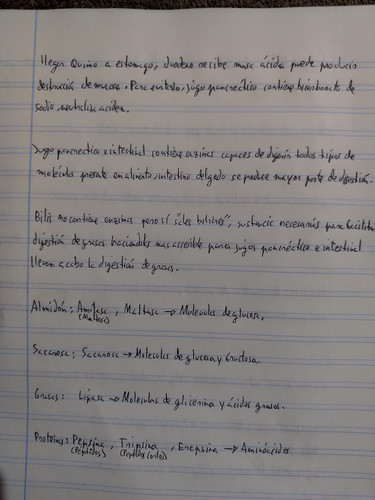 llega Quimo a estomago, duodeno recibe masa ácida puede producir
destrucción de mucosa. Para evitarlo, jugo pancreático contiene bicarbonato de
sodio, neutraliza acidez.
Jugo pancreatico e intestinal contiene enzimas capaces de digerir todos tipos de
molécula presente en alimento, intestino delgado se produce mayor parte de digestión.
Bilis no contiene enzimas pero sí "sales biliares", sustancia necesarias para facilitar
digestión de grasas haciendolas mas accesible para jugos pancreático e intestinal
llevan a cabo la digestión de grasas.
Almidón: Amilasa, Maltasa → Moleculas de glucosa.
(Maltosa)
Sacarosa: Sacarasa → Moleculas de glucosa y fructosa.
Grasas: Lipasa → Moleculas de glicerina y ácidos grasos.
Proteinas: Pepsina, Tripsina, Erepsina → Aminoácidos
(Péptidos) (Péptidos cortos)